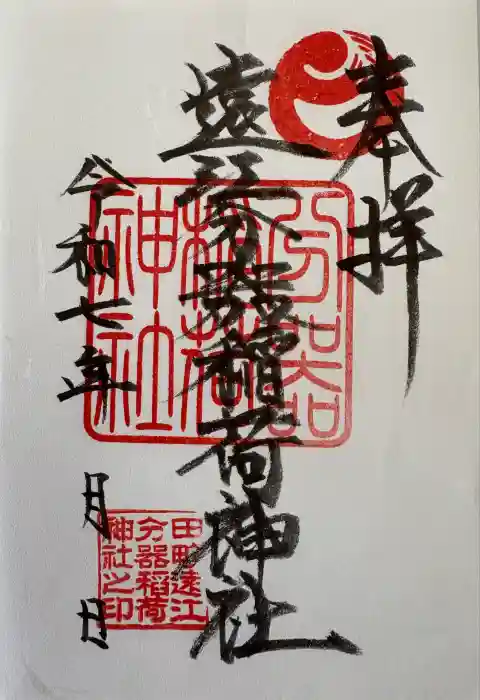 奉拝
遠江分器稲荷神社
令和七年 月 日
分器
稲荷
神社
田町遠江
分器稲荷
神社之印